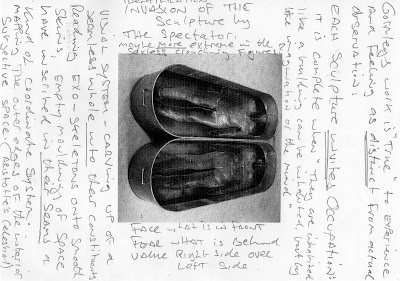 IDENTIFICATION
INVASION OF THE
Sculpture by
THE SPECTATOR.
maybe more extreme in the
sexless crouching figure
GORMLEY'S WORK IS "TRUE" TO EXPERIENCE
AND FEELING AS DISTINCT FROM ACTUAL
OBSERVATION.
EACH SCULPTURE INVITES OCCUPATION:
IT IS COMPLETE WHEN "THEY ARE INHABITED
LIKE A BUILDING CAN BE INHABITED, but by
THE IMAGINATION OR THE MIND"
FACE WHAT IS IN FRONT
FEAR WHAT IS BEHIND
VALUE RIGHT SIDE OVER
LEFT SIDE.
VISUAL SYSTEM - CARVING UP OF A
SEAMLESS WHOLE INTO THEIR CONSTITUENTS
READING EXO-SKELETONS ONTO SMOOTH
SKINS. EMPTY MOULDINGS OF SPACE
HAVE INSCRIBED IN THEIR SEAMS A
KIND OF COORDINATE SYSTEM
MAPPING THE OUTER EDGES OF THE INTERIOR
SUBJECTIVE SPACE (ARISTOTLE'S CELESTIAL)